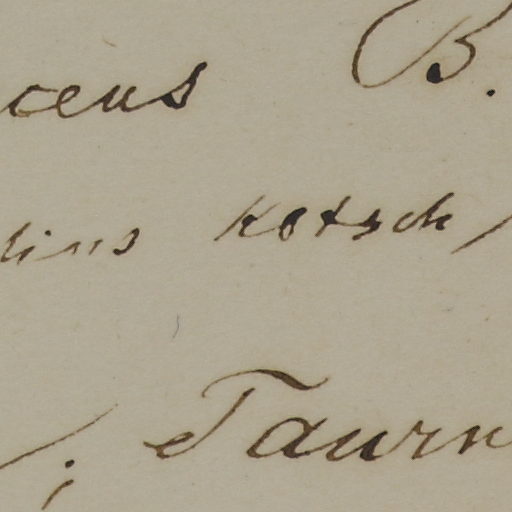 ceus B.
lius Kotsch
; Taurn